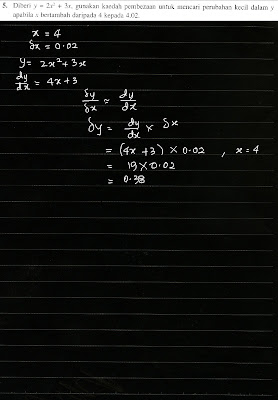 5. Diberi y = 2x² + 3x, gunakan kaedah pembezaan untuk mencari perubahan kecil dalam y
apabila x bertambah daripada 4 kepada 4.02.
x = 4
δx = 0.02
y = 2x² + 3x
dy/dx = 4x + 3
δy/δx ≈ dy/dx
δy = dy/dx × δx
= (4x + 3) × 0.02 , x = 4
= 19 × 0.02
= 0.38